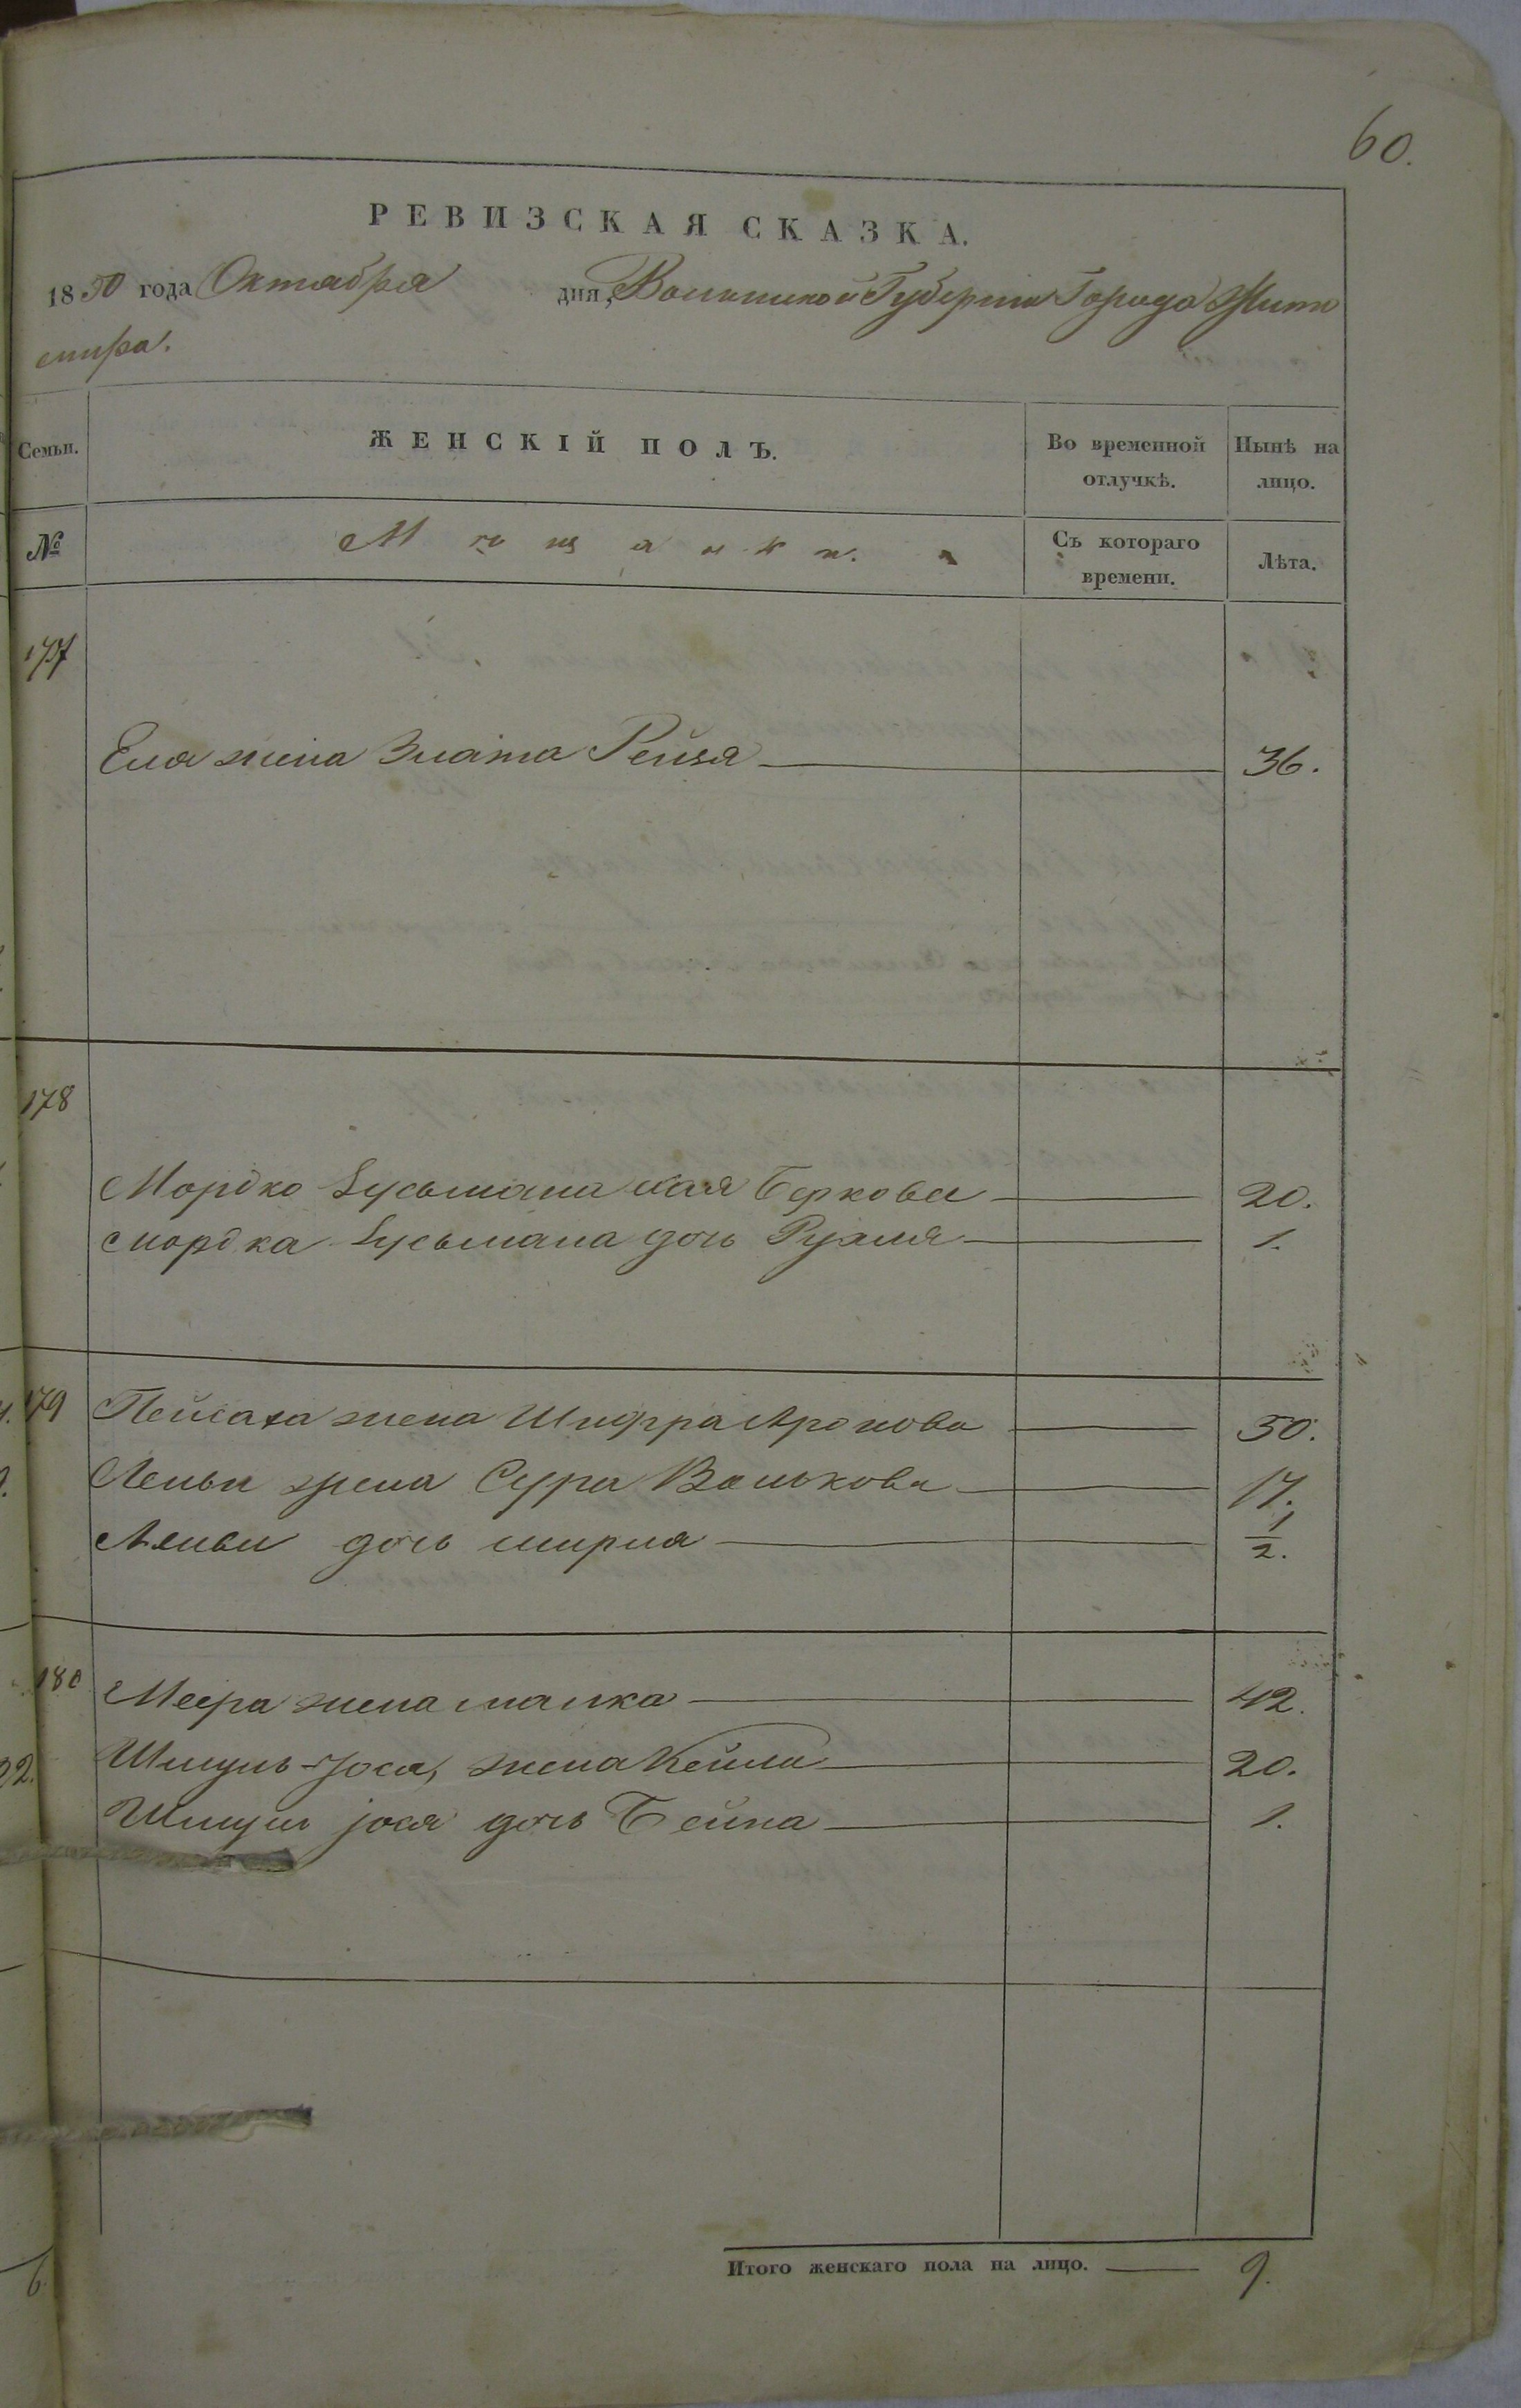 60.
РЕВИЗСКАЯ СКАЗКА.
1850 года Октября дня, Волынской Губернии Города Жито
мира.
Семьи. ЖЕНСКІЙ ПОЛЪ. Во временной отлучкѣ. Нынѣ на лицо.
№ Мещанки. Съ котораго времени. Лѣта.
177
Его жена Злата Рейзя 36.
178
Мордко Зусьмана Хая Беркова 20.
Мордка Зусьмана дочь Рухля 1.
179 Пейсаха жена Шифра Аронова 50.
Лейви жена Сура Валькова 17.
Лейви дочь Мирля 1/2.
180 Меера жена Малка 42.
Шмуль-Йося, жена Кейла 20.
Шмуль йося дочь Бейла 1.
Итого женскаго пола на лицо. 9.